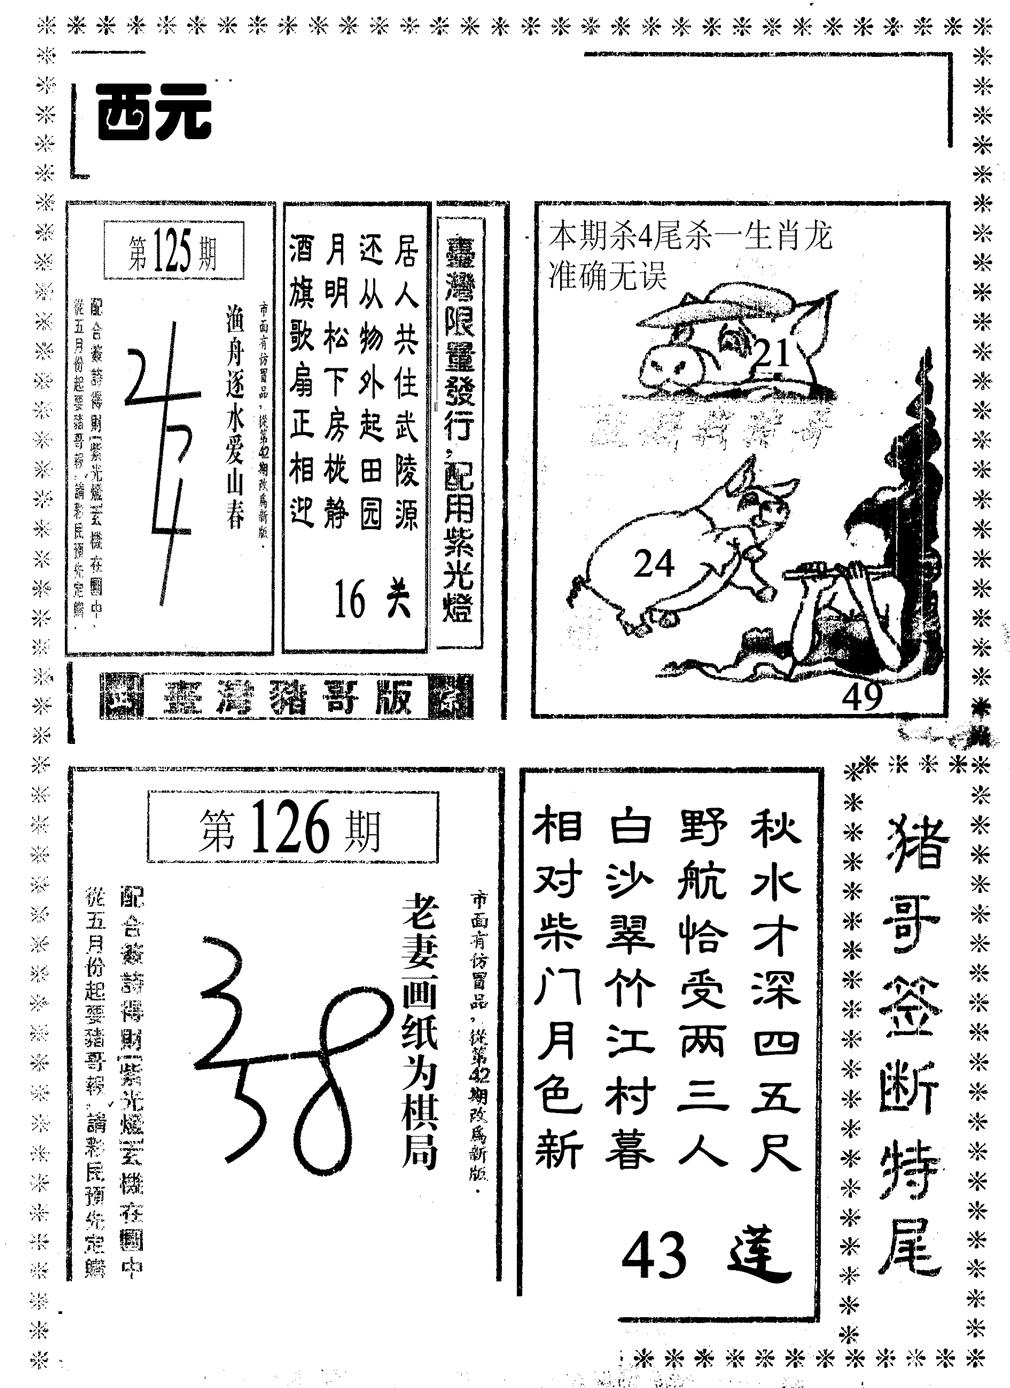 西元
第125期
渔舟逐水爱山春
市面有仿冒品，從第42期改爲新版．
配合簽詩得財(紫光燈)玄機在圖中．
從五月份起要豬哥報，請彩民預先定購．
居人共住武陵源
还从物外起田园
月明松下房栊静
酒旗歌扇正相迎
16 关
臺灣限量發行，配用紫光燈
臺灣豬哥版
本期杀4尾杀一生肖龙
准确无误
21
24
49
第126期
老妻画纸为棋局
市面有仿冒品，從第42期改爲新版．
配合簽詩得財(紫光燈)玄機在圖中
從五月份起要豬哥報，請彩民預先定購
秋水才深四五尺
野航恰受两三人
白沙翠竹江村暮
相对柴门月色新
43 莲
猪哥签断特尾